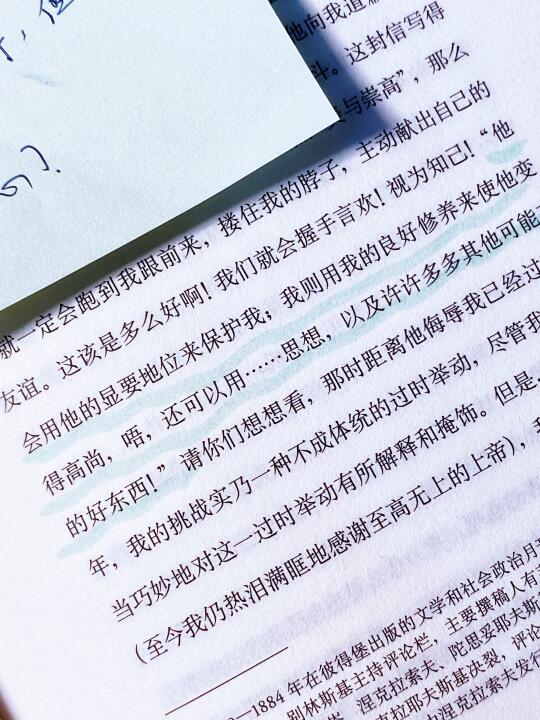 他向我道
斗。这封信写得
与崇高”，那么
就一定会跑到我跟前来，搂住我的脖子，主动献出自己的
友谊。这该是多么好啊！我们就会握手言欢！视为知己！“他
会用他的显要地位来保护我；我则用我的良好修养来使他变
得高尚，唔，还可以用……思想，以及许许多多其他可能
的好东西！”请你们想想看，那时距离他侮辱我已经过
年，我的挑战实乃一种不成体统的过时举动，尽管我
当巧妙地对这一过时举动有所解释和掩饰。但是
（至今我仍热泪满眶地感谢至高无上的上帝），
—1884年在彼得堡出版的文学和社会政治月
别林斯基主持评论栏，主要撰稿人有
涅克拉索夫、陀思妥耶夫斯
克拉耶夫斯基决裂，评论
涅克拉索夫发行